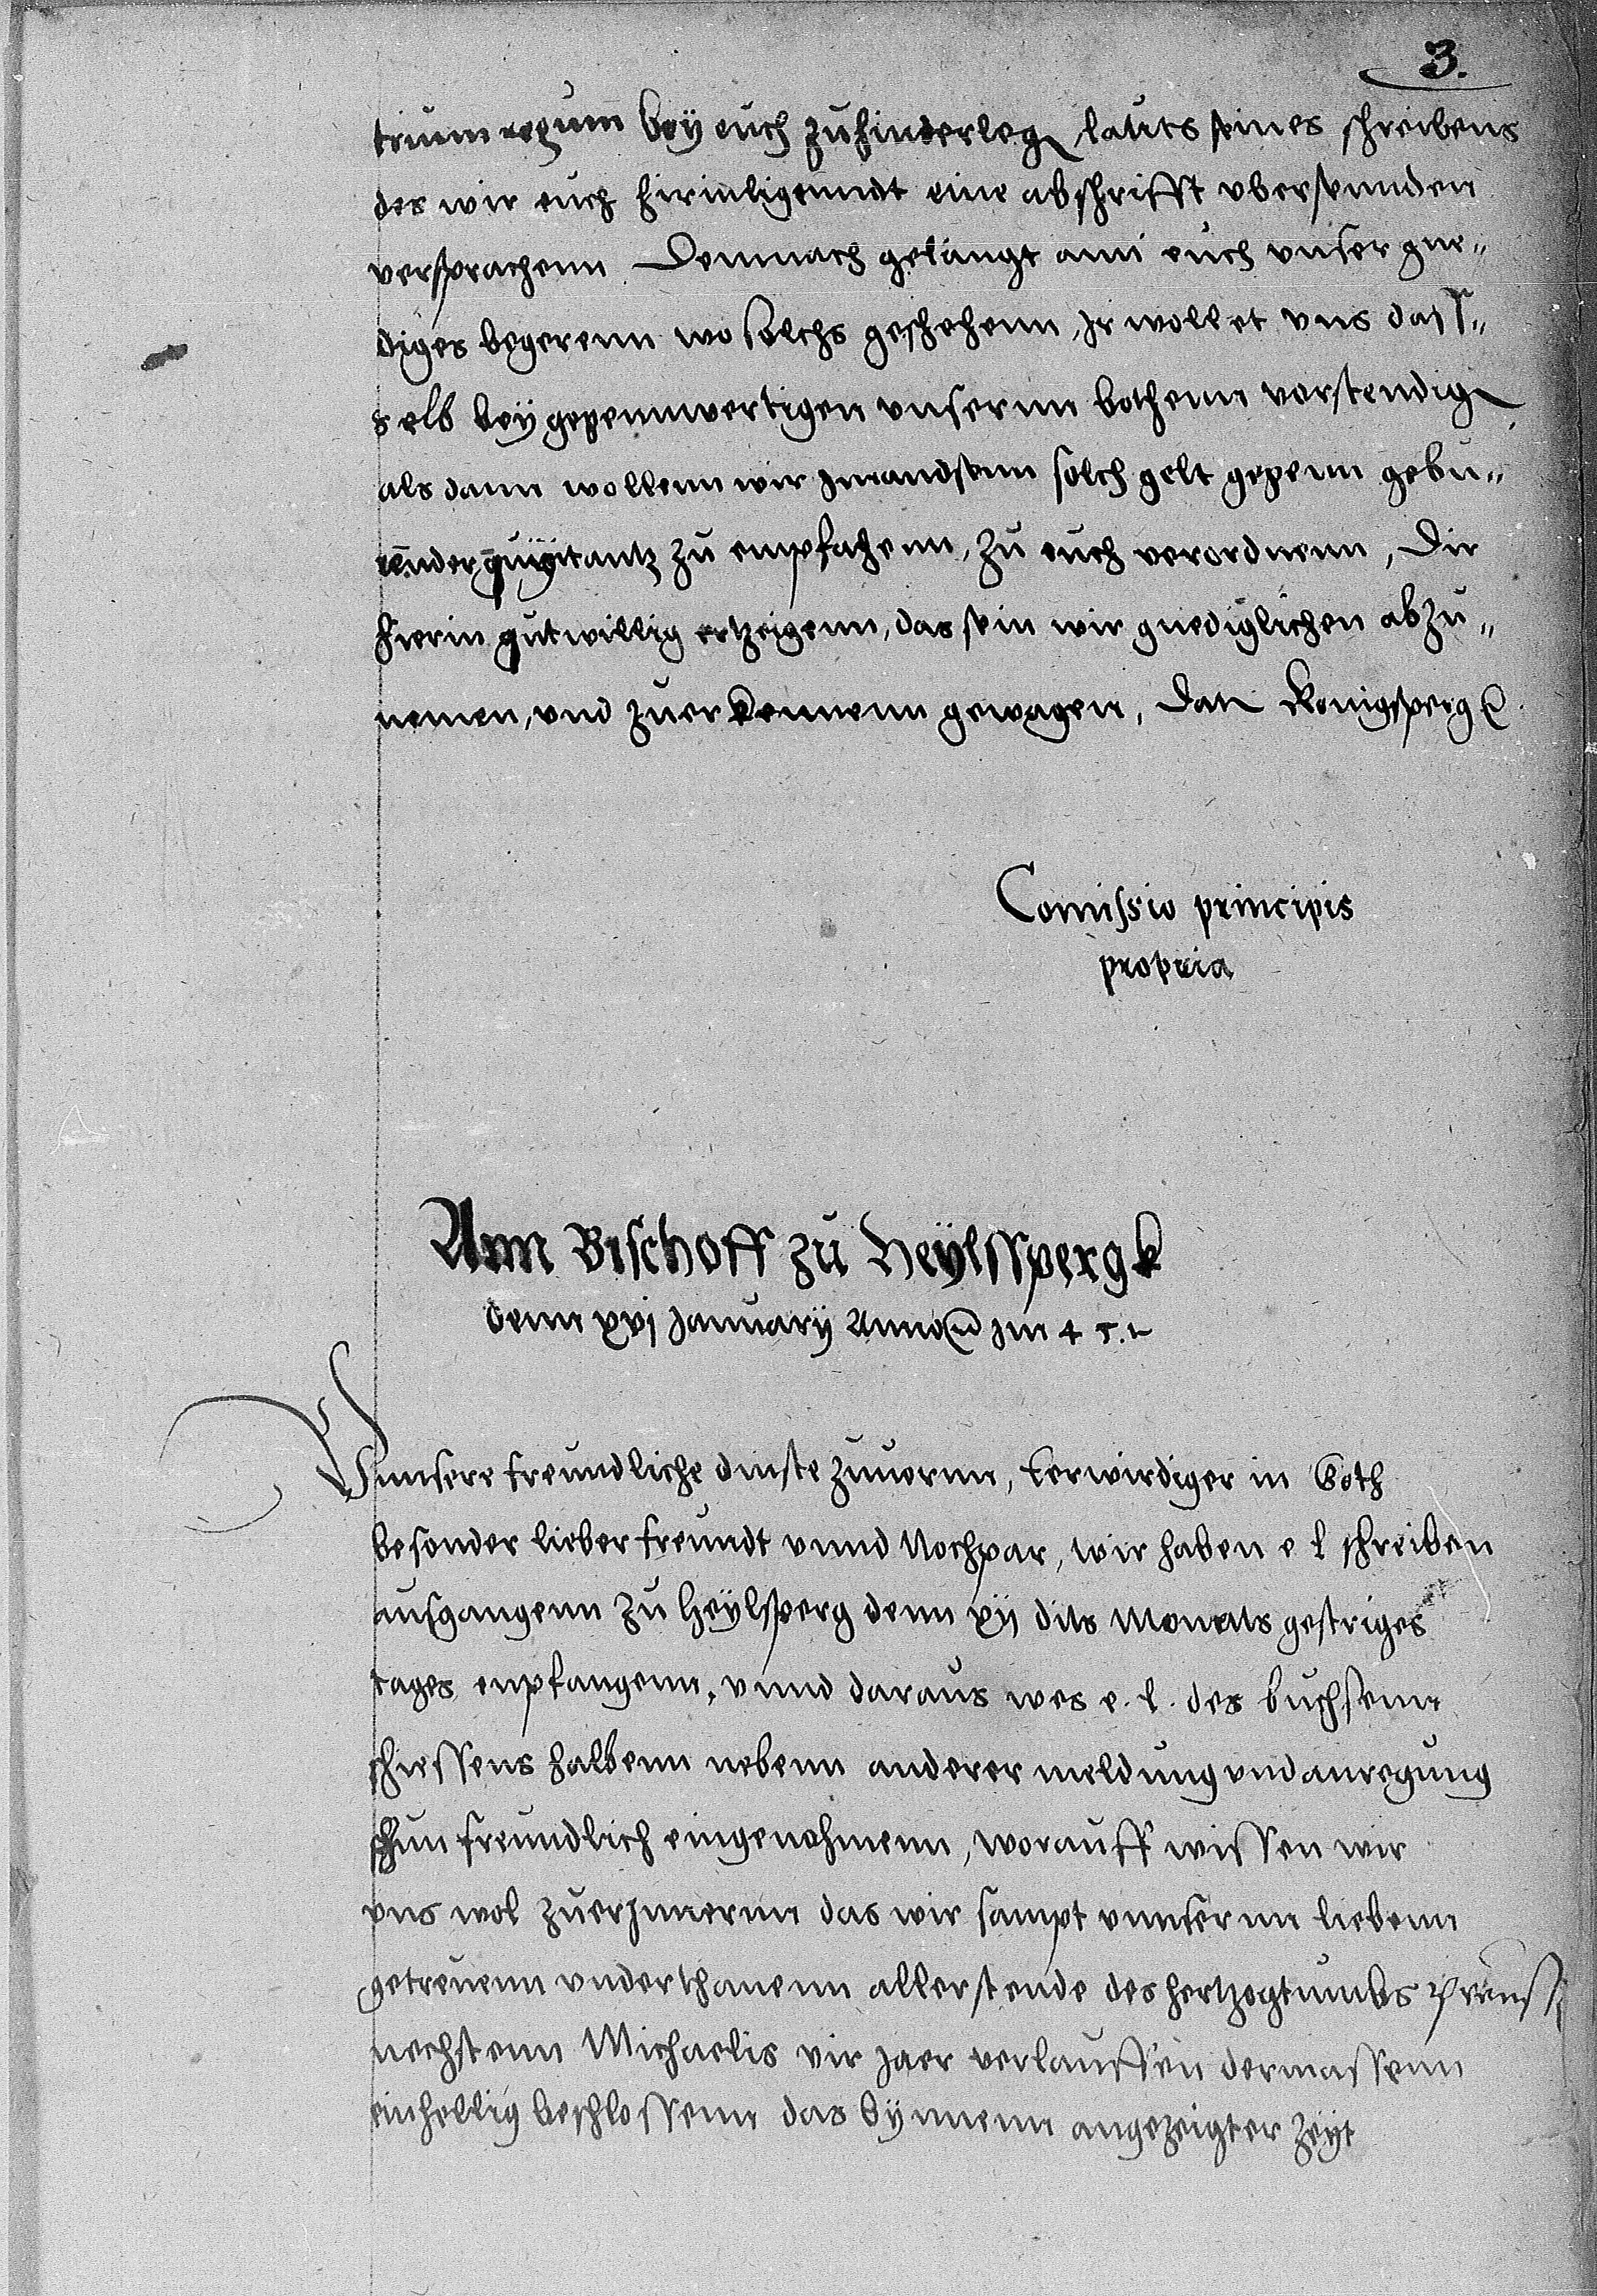 3.
trium regum beÿ euch zuhinderlegen lauts seines schreibens
des wir euch hirinligenndt eine abschrifft vbersennden
versprachenn Demnach gelangt ann euch vnser gne„
diges begerenn wo solchs geschehenn, Jr wollet vns dass„
selb beÿ gegennwertigen vnsernn bothenn vorstendigen
als dann wollenn wir Jmandtsenn solch gelt gegenn gebu„
render quÿtantz zu empfahenn, zu euch verordnenn, Die
hierin gutwillig ertzeigenn, das sein wir gnediglichen abzu„
nemen, vnd zuerkennenn gewagen, Datum Konigsperg
Comissio principis
propria
Ann Bischoff zu Heÿlsspergk
denn xvj Januarÿ Anno Jm 4
Vnnsere freundliche dinste zuuornn, Eerwirdiger in Goth
besonder lieber freundt vnnd Nochpar, wir haben e l schreiben
ausgangenn zu Heÿlsperg denn xij dits Monats gestriges
tages enpfangenn, vnnd daraus wes e. l. des buchsenn
schiessens halbenn nebenn anderer meldung vnd anregung
freundlich eingenohmenn, worauff wissen wir
vns wol zuerJnnernn das wir sampt vnnsernn liebenn
getreuenn vnderthanenn aller stende des hertzogtumbs Preuss
nechstenn Michaelis vir Jaer verlauffen dermassenn
einhellig beschlossenn das bÿnnenn angezeigter zeÿt